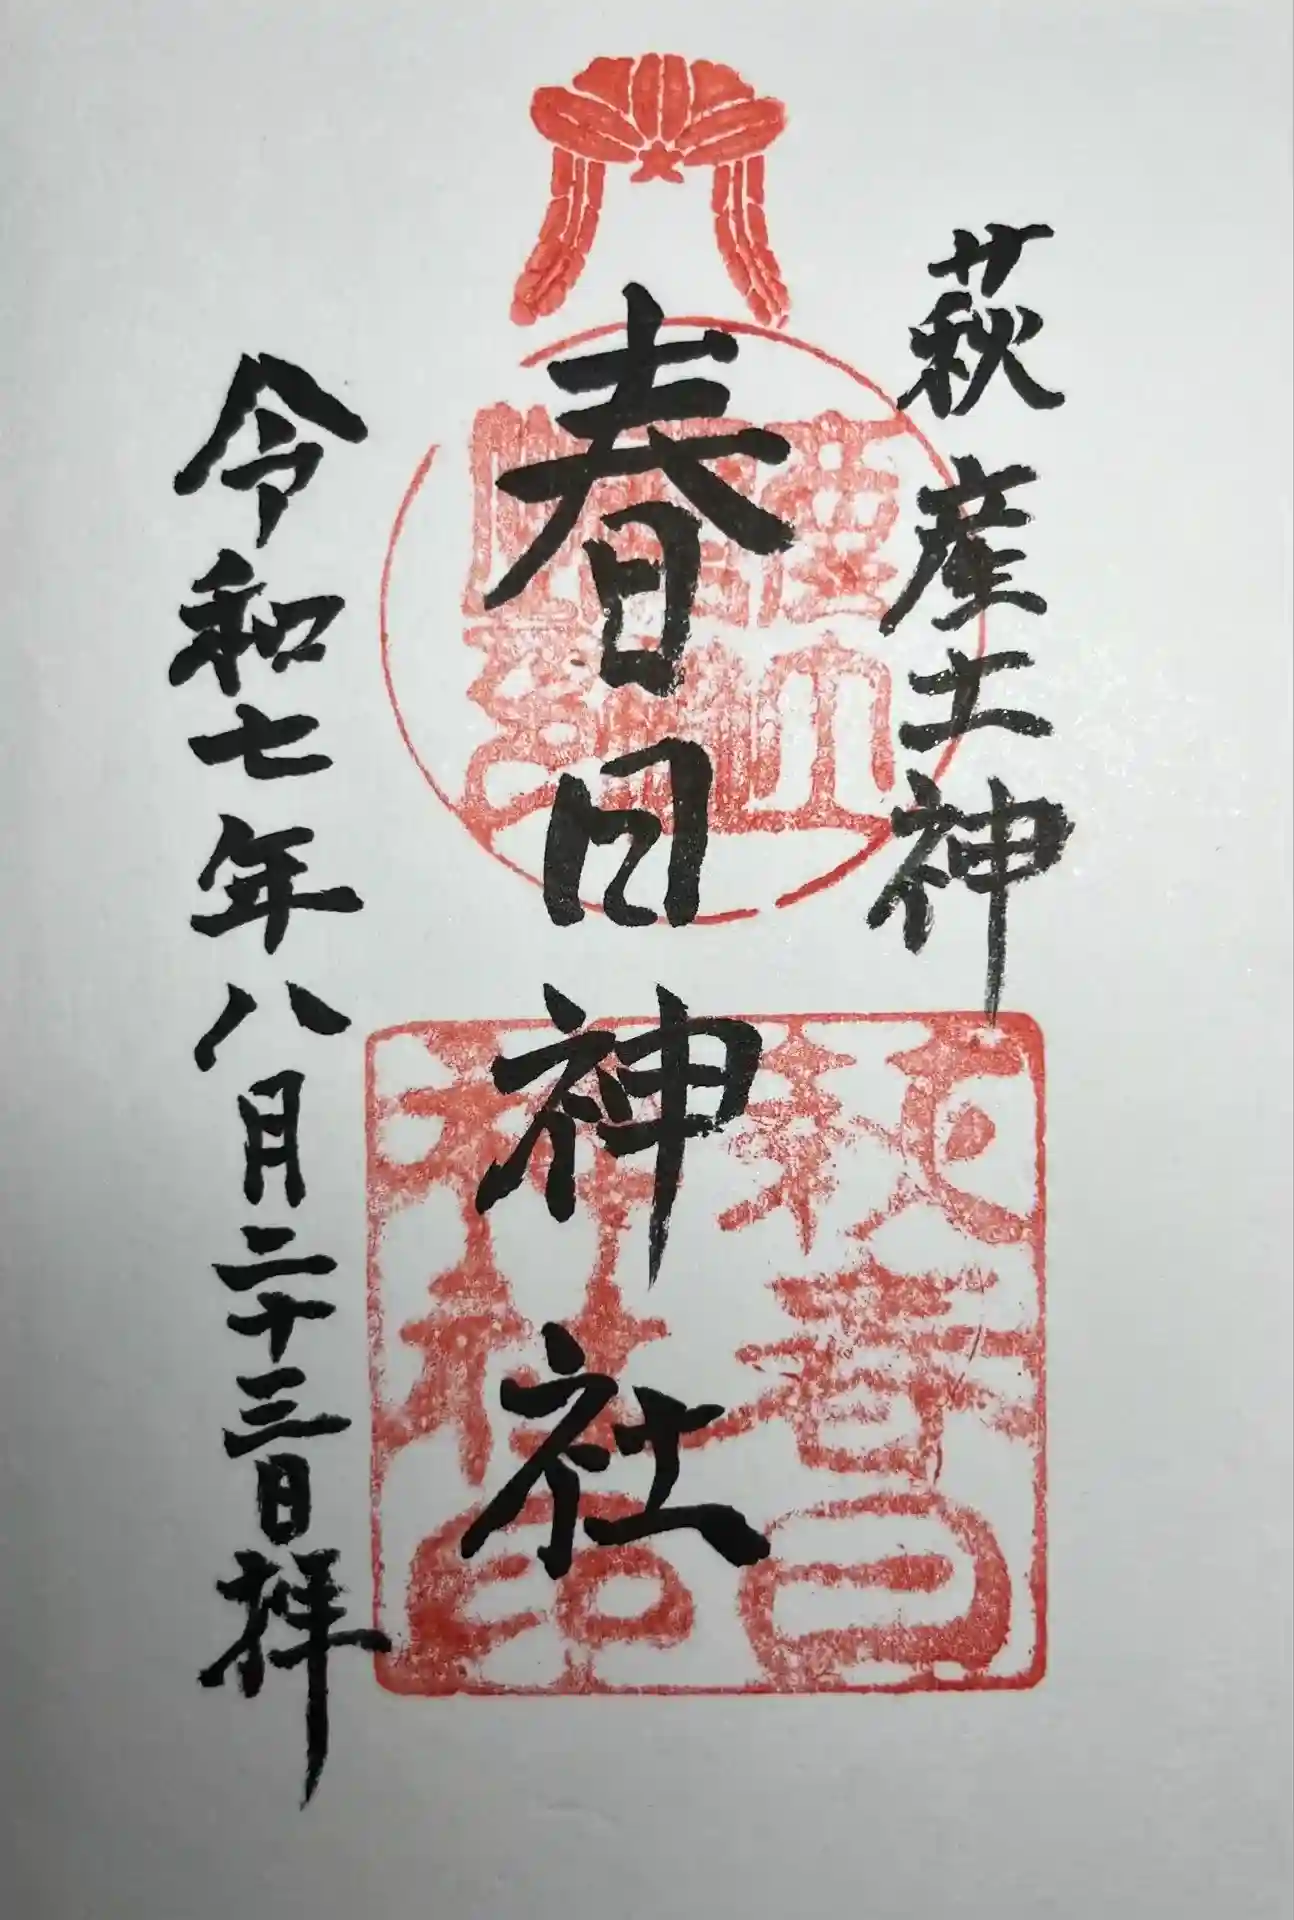 萩産土神
春日神社
令和七年八月二十三日拝
萩春日
神社印